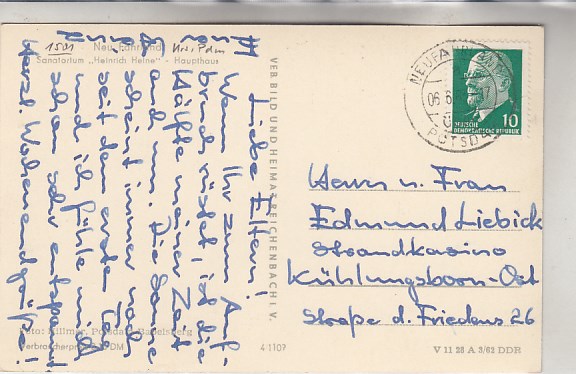 1501
Neu Fahrland
Krs. Pdm
Sanatorium „Heinrich Heine" - Haupthaus
Liebe Eltern!
Wenn Ihr zum Auf-
bruch rüstet, ist die
Hälfte meiner Zeit
auch um. Die Sonne
scheint immer noch
seit dem ersten Tag
und ich fühle mich
schon sehr entspannt
Herzl. Wochenendgrüße!
VEB BILD UND HEIMAT REICHENBACH I. V.
Foto: Killmer, Potsdam-Babelsberg
Verbraucherpreis DM
4/1107
NEUFAHRLAND
06.6
POTSDAM
10
DEUTSCHE
DEMOKRATISCHE REPUBLIK
Herrn u. Frau
Edmund Liebick
Strandkasino
Kühlungsborn-Ost
Straße d. Friedens 26
V 11 28 A 3/62 DDR